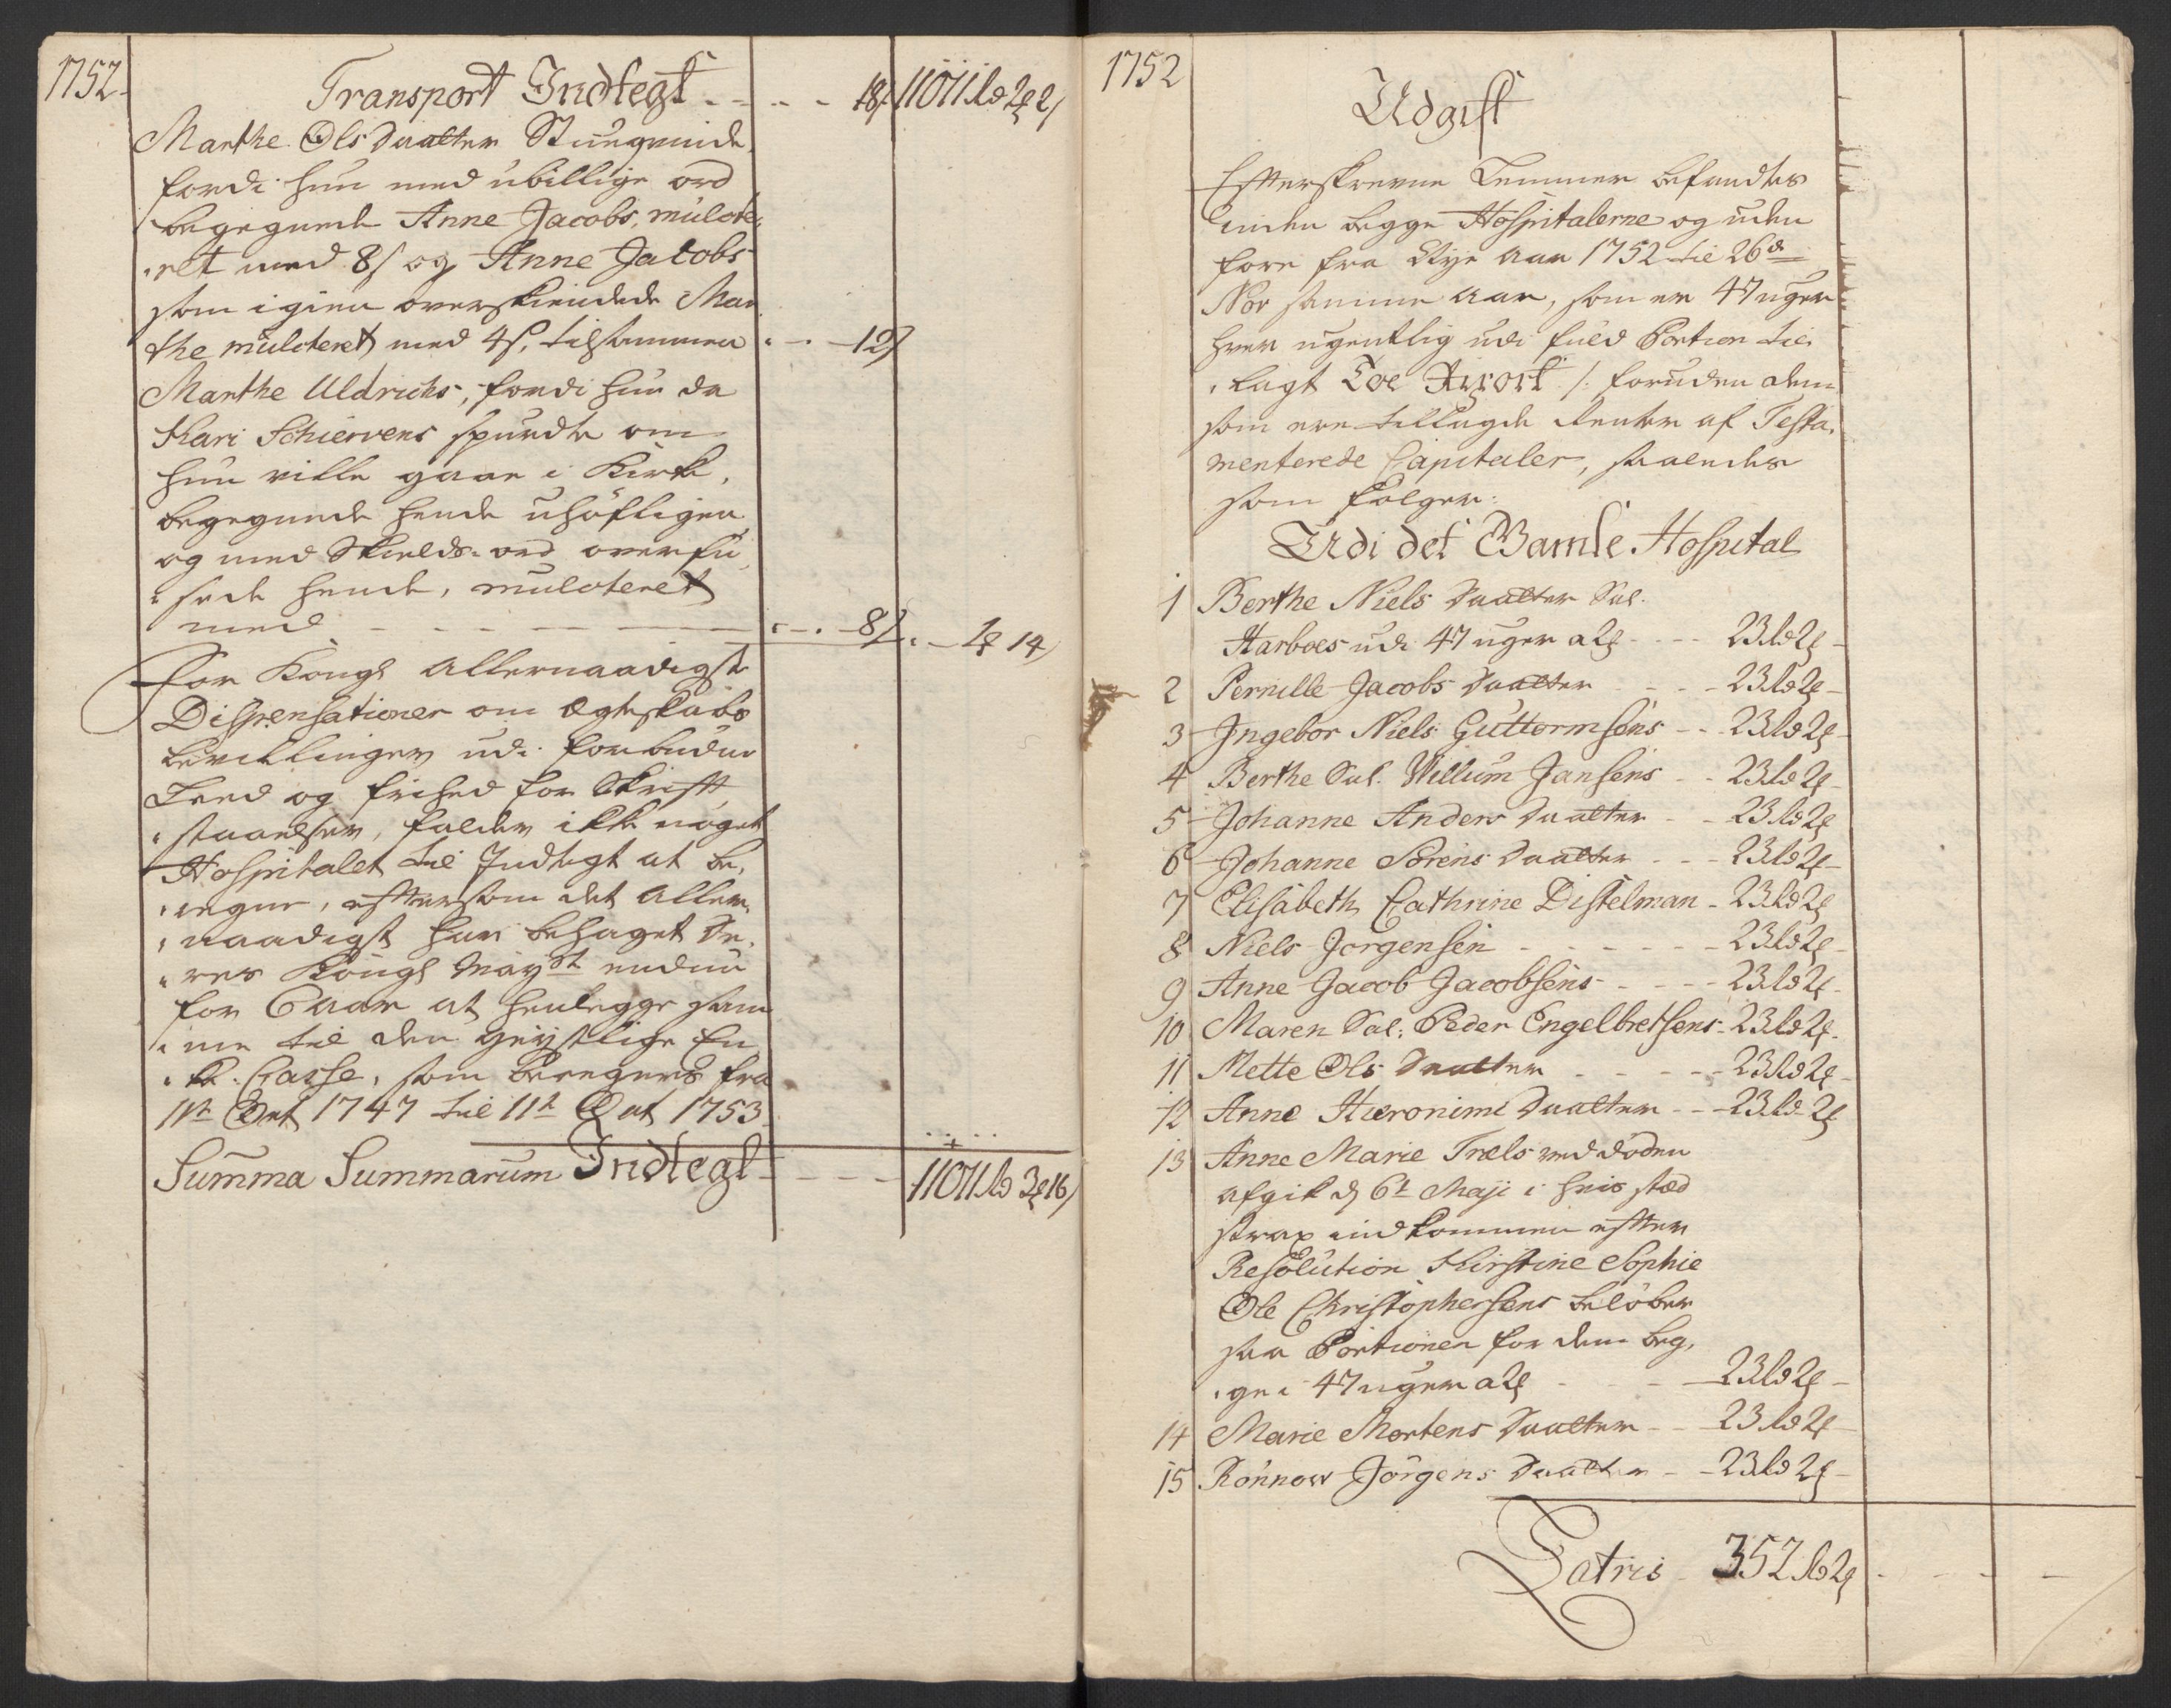 1752.
Transport Indtegt - - - - 18 ß 11011 Rd 2 ₰ 2 ß
Marthe Ols Daatter Stuegvinde
fordi hun med ubillige ord
begegnede Anne Jacobs, mulcte-
ret med 8 ß og Anne Jacobs
som igien overskiendede Mar
the mulcteret med 4 ß, tilsammen - - 12 ß
Marthe Uldrichs, fordi hun da
Kari Schiervens spurdte om
hun ville gaae i Kirke,
begegnede hende uhöfligen
og med Skields-ord overfu-
sede hende, mulcteret
med - - - - - - 8 ß - 1 ₰ 14 ß
For Kongl Allernaadigste
Dispensationer om Egteskabs
bevillinger udi forbudne
Leed og frihed for Skrift
staaelser, falder ikke noget
Hospitalet til Indtegt at be-
regne, eftersom det Aller-
naadigst har behaget De-
res Kongl Mayst endnu
for 6 Aar at henlegge sam
me til den Geystlige En
ke Casse, som beregnes fra
11te Oct 1747 til 11te Oct 1753
Summa Summarum Indtegt - - - - 11011 Rd 3 ₰ 16 ß
1752
Udgift
Efterskrevne Lemmer befandtes
inden begge Hospitalerne og uden
fore fra Nye Aar 1752 til 26de
Nov samme Aar, som er 47 uger
hver ugentlig udi fuld Portion til-
lagt Toe Ort /: foruden dem
som ere tillagde Renter af Testa-
menterede Capitaler, saaledes
som følger:
Udi det Gamle Hospital
1 Berthe Niels Daatter Sal.
Harboes udi 47 uger a 2 ₰ - - - 23 Rd 2 ₰
2 Pernille Jacobs Daatter - - - 23 Rd 2 ₰
3 Ingebor Niels Guttormsens - - 23 Rd 2 ₰
4 Berthe Sal. Willum Jansens - - 23 Rd 2 ₰
5 Johanne Anders Daatter - - 23 Rd 2 ₰
6 Johanne Sörens Daatter - - - 23 Rd 2 ₰
7 Elisabeth Cathrine Distelman - 23 Rd 2 ₰
8 Niels Jörgensen - - - - - - 23 Rd 2 ₰
9 Anne Jacob Jacobsens - - - - 23 Rd 2 ₰
10 Maren Sal: Peder Engelbretsens - 23 Rd 2 ₰
11 Mette Ols Daatter - - - - - 23 Rd 2 ₰
12 Anne Hieronimi Daatter - - - 23 Rd 2 ₰
13 Anne Marie Træls ved døden
afgik d 6t Maji i hvis stæd
strax indkommen efter
Resolution Kirstine Sophie
Ole Christophersens belöber
saa Portionen for dem beg-
ge i 47 uger a 2 ₰ - - - 23 Rd 2 ₰
14 Marie Mortens Daatter - - 23 Rd 2 ₰
15 Rönnow Jörgens Daatter - - 23 Rd 2 ₰
Latris - 352 Rd 2 ₰ - - - -